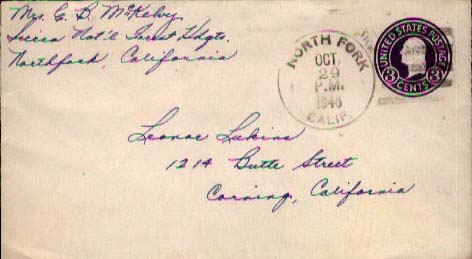 Mrs. E. B. McKelvy
Sierra Nat'l Forest Hdqts.
Northfork, California
NORTH FORK
OCT
29
P.M.
1946
CALIF.
UNITED STATES POSTAGE
3 CENTS 3
Leonae Lukins
1214 Butte Street
Corning, California